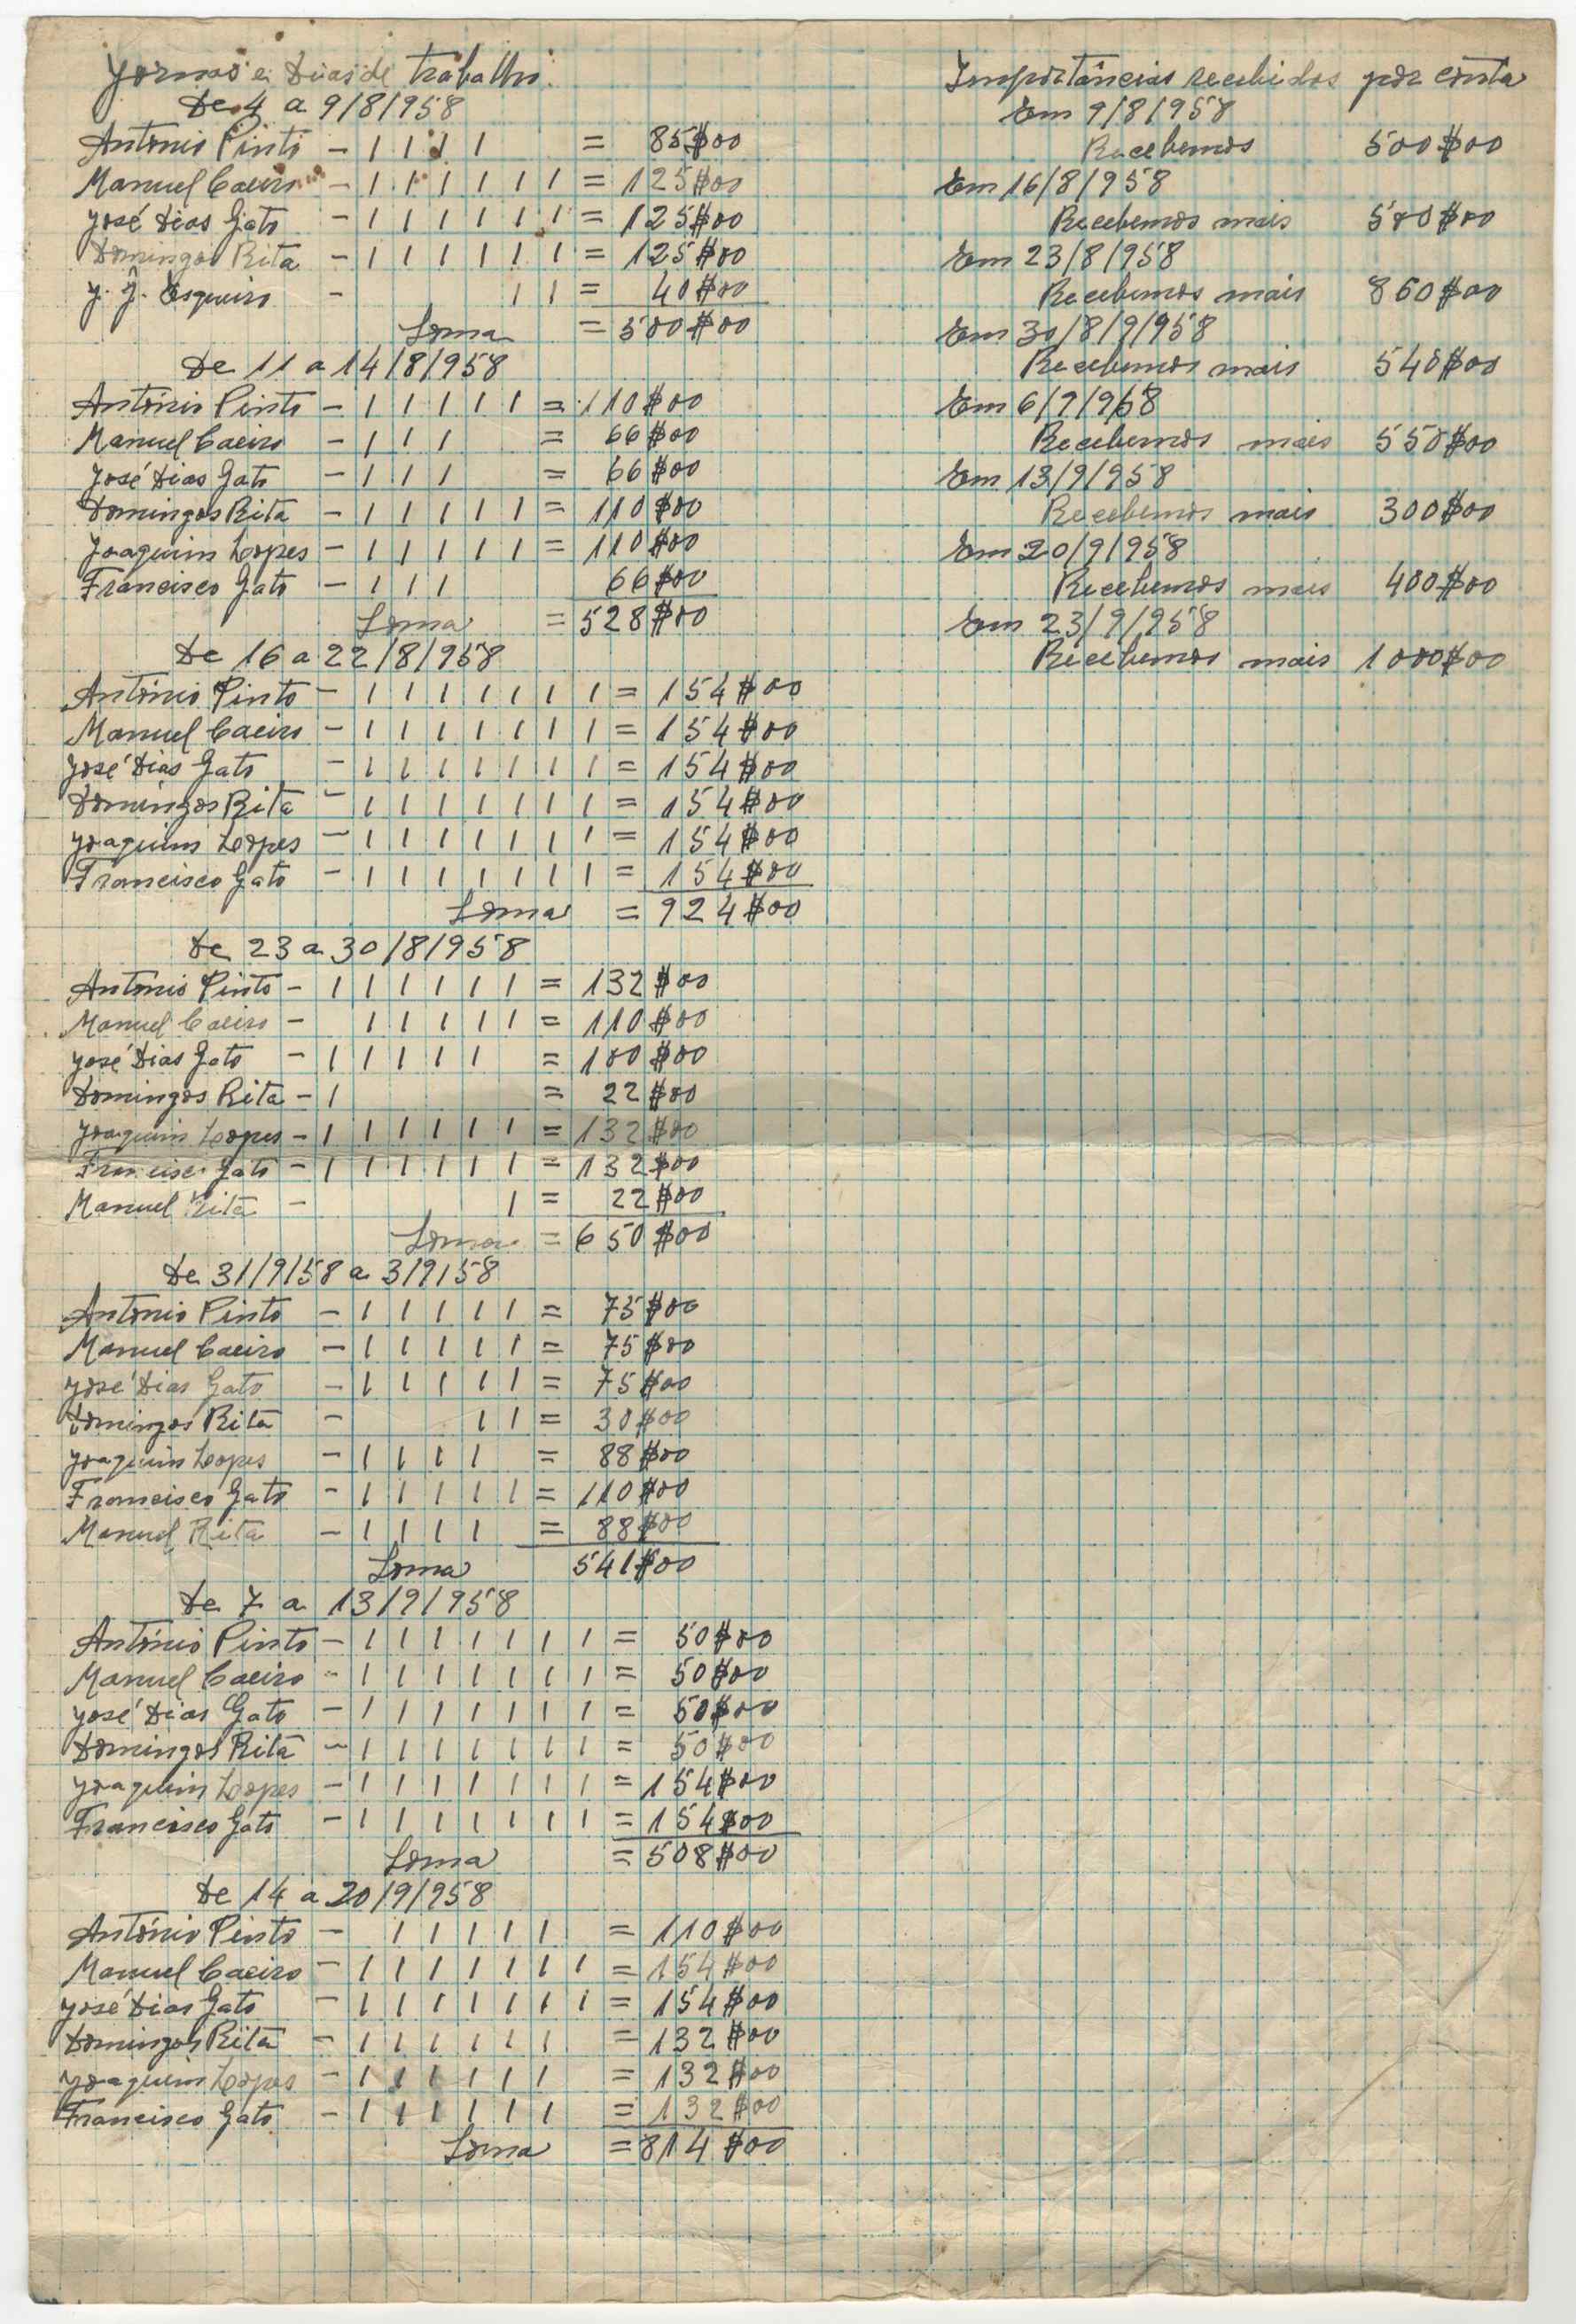 Jornas e Dias de trabalho
De 4 a 9/8/958
António Pinto - I I I I = 85$00
Manuel Caeiro - I I I I I I = 125$00
José Dias Gato - I I I I I I = 125$00
Domingos Rita - I I I I I I = 125$00
J. J. Esqueiro - I I = 40$00
Soma = 500$00
De 11 a 14/8/958
António Pinto - I I I I I = 110$00
Manuel Caeiro - I I I = 66$00
José Dias Gato - I I I = 66$00
Domingos Rita - I I I I I = 110$00
Joaquim Lopes - I I I I I = 110$00
Francisco Gato - I I I 66$00
Soma = 528$00
De 16 a 22/8/958
António Pinto - I I I I I I I = 154$00
Manuel Caeiro - I I I I I I I = 154$00
José Dias Gato - I I I I I I I = 154$00
Domingos Rita - I I I I I I I = 154$00
Joaquim Lopes - I I I I I I I = 154$00
Francisco Gato - I I I I I I I = 154$00
Soma = 924$00
De 23 a 30/8/958
António Pinto - I I I I I I = 132$00
Manuel Caeiro - I I I I I = 110$00
José Dias Gato - I I I I I = 100$00
Domingos Rita - I = 22$00
Joaquim Lopes - I I I I I I = 132$00
Francisco Gato - I I I I I I = 132$00
Manuel Rita - I = 22$00
Soma = 650$00
De 31/9/58 a 3/9/58
António Pinto - I I I I I = 75$00
Manuel Caeiro - I I I I I = 75$00
José Dias Gato - I I I I I = 75$00
Domingos Rita - I I = 30$00
Joaquim Lopes - I I I I = 88$00
Francisco Gato - I I I I I = 110$00
Manuel Rita - I I I I = 88$00
Soma 541$00
De 7 a 13/9/958
António Pinto - I I I I I I I = 50$00
Manuel Caeiro - I I I I I I I = 50$00
José Dias Gato - I I I I I I I = 50$00
Domingos Rita - I I I I I I I = 50$00
Joaquim Lopes - I I I I I I I = 154$00
Francisco Gato - I I I I I I I = 154$00
Soma = 508$00
De 14 a 20/9/958
António Pinto - I I I I I = 110$00
Manuel Caeiro - I I I I I I I = 154$00
José Dias Gato - I I I I I I I = 154$00
Domingos Rita - I I I I I I = 132$00
Joaquim Lopes - I I I I I I = 132$00
Francisco Gato - I I I I I I = 132$00
Soma = 814$00
Importâncias recebidas por conta
Em 9/8/958
Recebemos 500$00
Em 16/8/958
Recebemos mais 500$00
Em 23/8/958
Recebemos mais 860$00
Em 30/8/9/958
Recebemos mais 540$00
Em 6/9/958
Recebemos mais 550$00
Em 13/9/958
Recebemos mais 300$00
Em 20/9/958
Recebemos mais 400$00
Em 23/9/958
Recebemos mais 1000$00